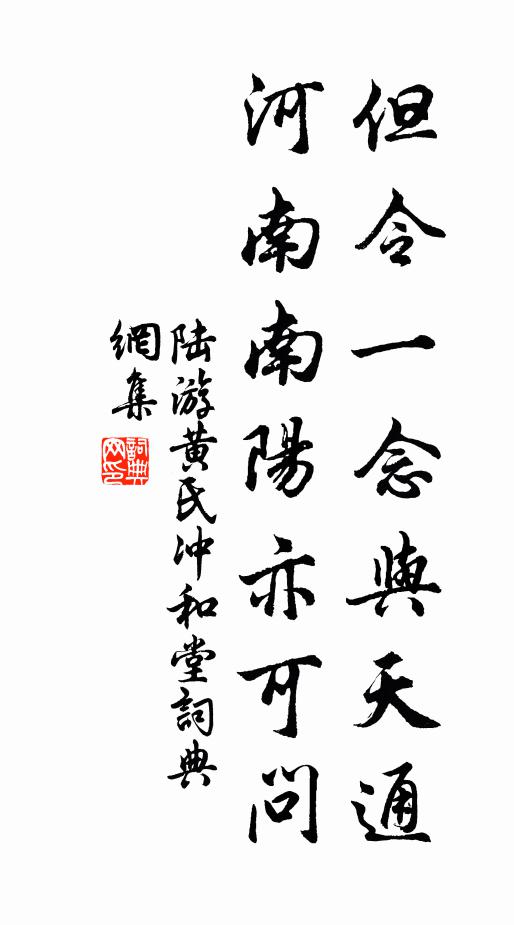 但令一念與天通
河南南陽亦可問
陆游黄氏冲和堂詞典
網集
詞典
网印